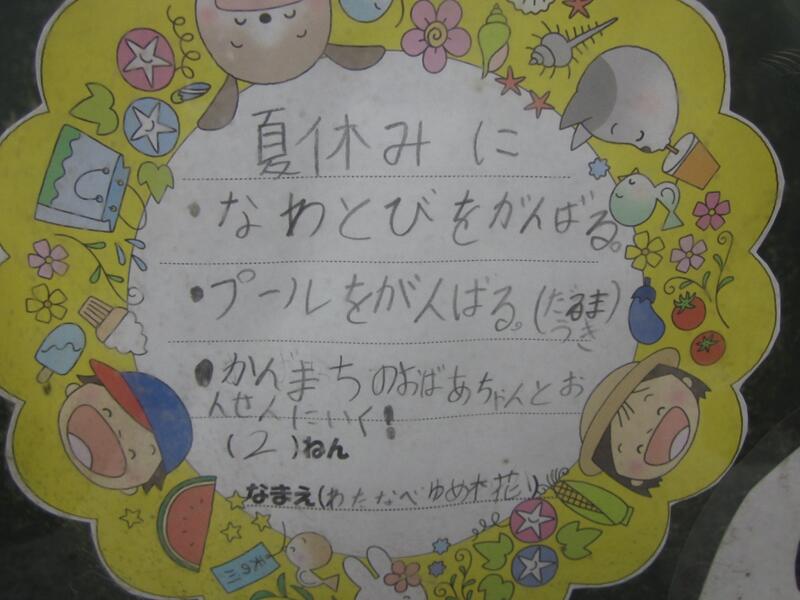 夏休みに
・なわとびをがんばる。
・プールをがんばる。(だるま
うき)
・かんまちのおばあちゃんとお
んせんにいく!
(2)ねん
なまえ(わたなべゆめ花)
天の川